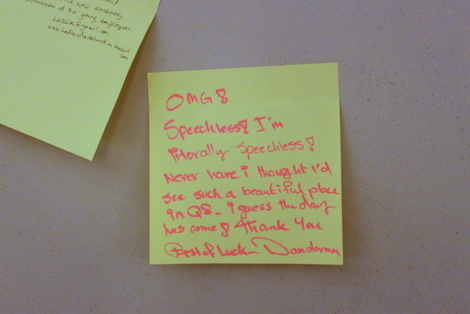 of the young employees
OMG!
Speechless! I'm
literally Speechless!
Never have i thought I'd
see such a beautiful place
in Q8_ i guess the day
has come! Thank You
Best of Luck Danderma